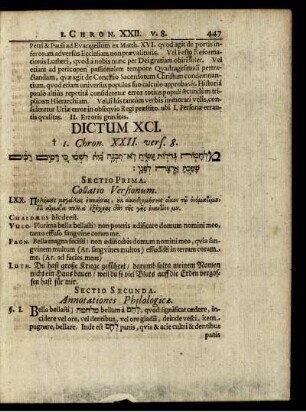 I. CHRON. XXII. v. 8. 447
Petri & Pauli ad Evangelium ex Matth. XVI. quod agit de portis in-
ferorum adversus Ecclesiam non prævalituris. Vel Festo Reforma-
tionis Lutheri, quod à nobis nunc per Dei gratiam obit
etiam ad pericopen passionalem tempore Quadragesimali pertra-
ctandam, quæ agit de Concilio Sacerdotum Christum condemnan-
tium, quod etiam universus populus suo calculo approbavit. Historia
paulo altius repetita consideretur error totius populi
triplicem Hierarchiam. Vel, si his tantum verbis immorari velis, consi-
deretur Uriæ error in obsequio Regi præstito, ubi I. Persona erran-
tis quæsitas. II. Erroris gravitas.
DICTUM XCI.
1. Chron. XXII. vers. 8.
SECTIO PRIMA.
Collatio Versionum.
LXX.
CHALDÆUS hîc deest.
VULG. Plurima bella bellasti: non poteris ædificare domum nomini meo,
tanto effuso sanguine coram me.
PAGN. Bellaque magna fecisti: non ædificabis domum nomini meo, quia san-
guinem multum (Ar. sanguines multos) effudisti in terram coram
me. (Ar. ad facies meas)
LUTH. Du hast große Kriege geführet; darumb soltu meinem Namen
nicht ein Haus bauen / weil du so viel Bluts auff die Erden vergos-
sen hast für mir.
SECTIO SECUNDA.
Annotationes Philologicæ.
§. I. Bella bellasti) מלחמה bellum à לחם, quod significat cædere, in-
cidere vel ore, vel dentibus, vel ore gladii, deinde vesci, item,
pugnare, bellare. Inde est לחם panis, qvis & acie cultri & dentibus
panis